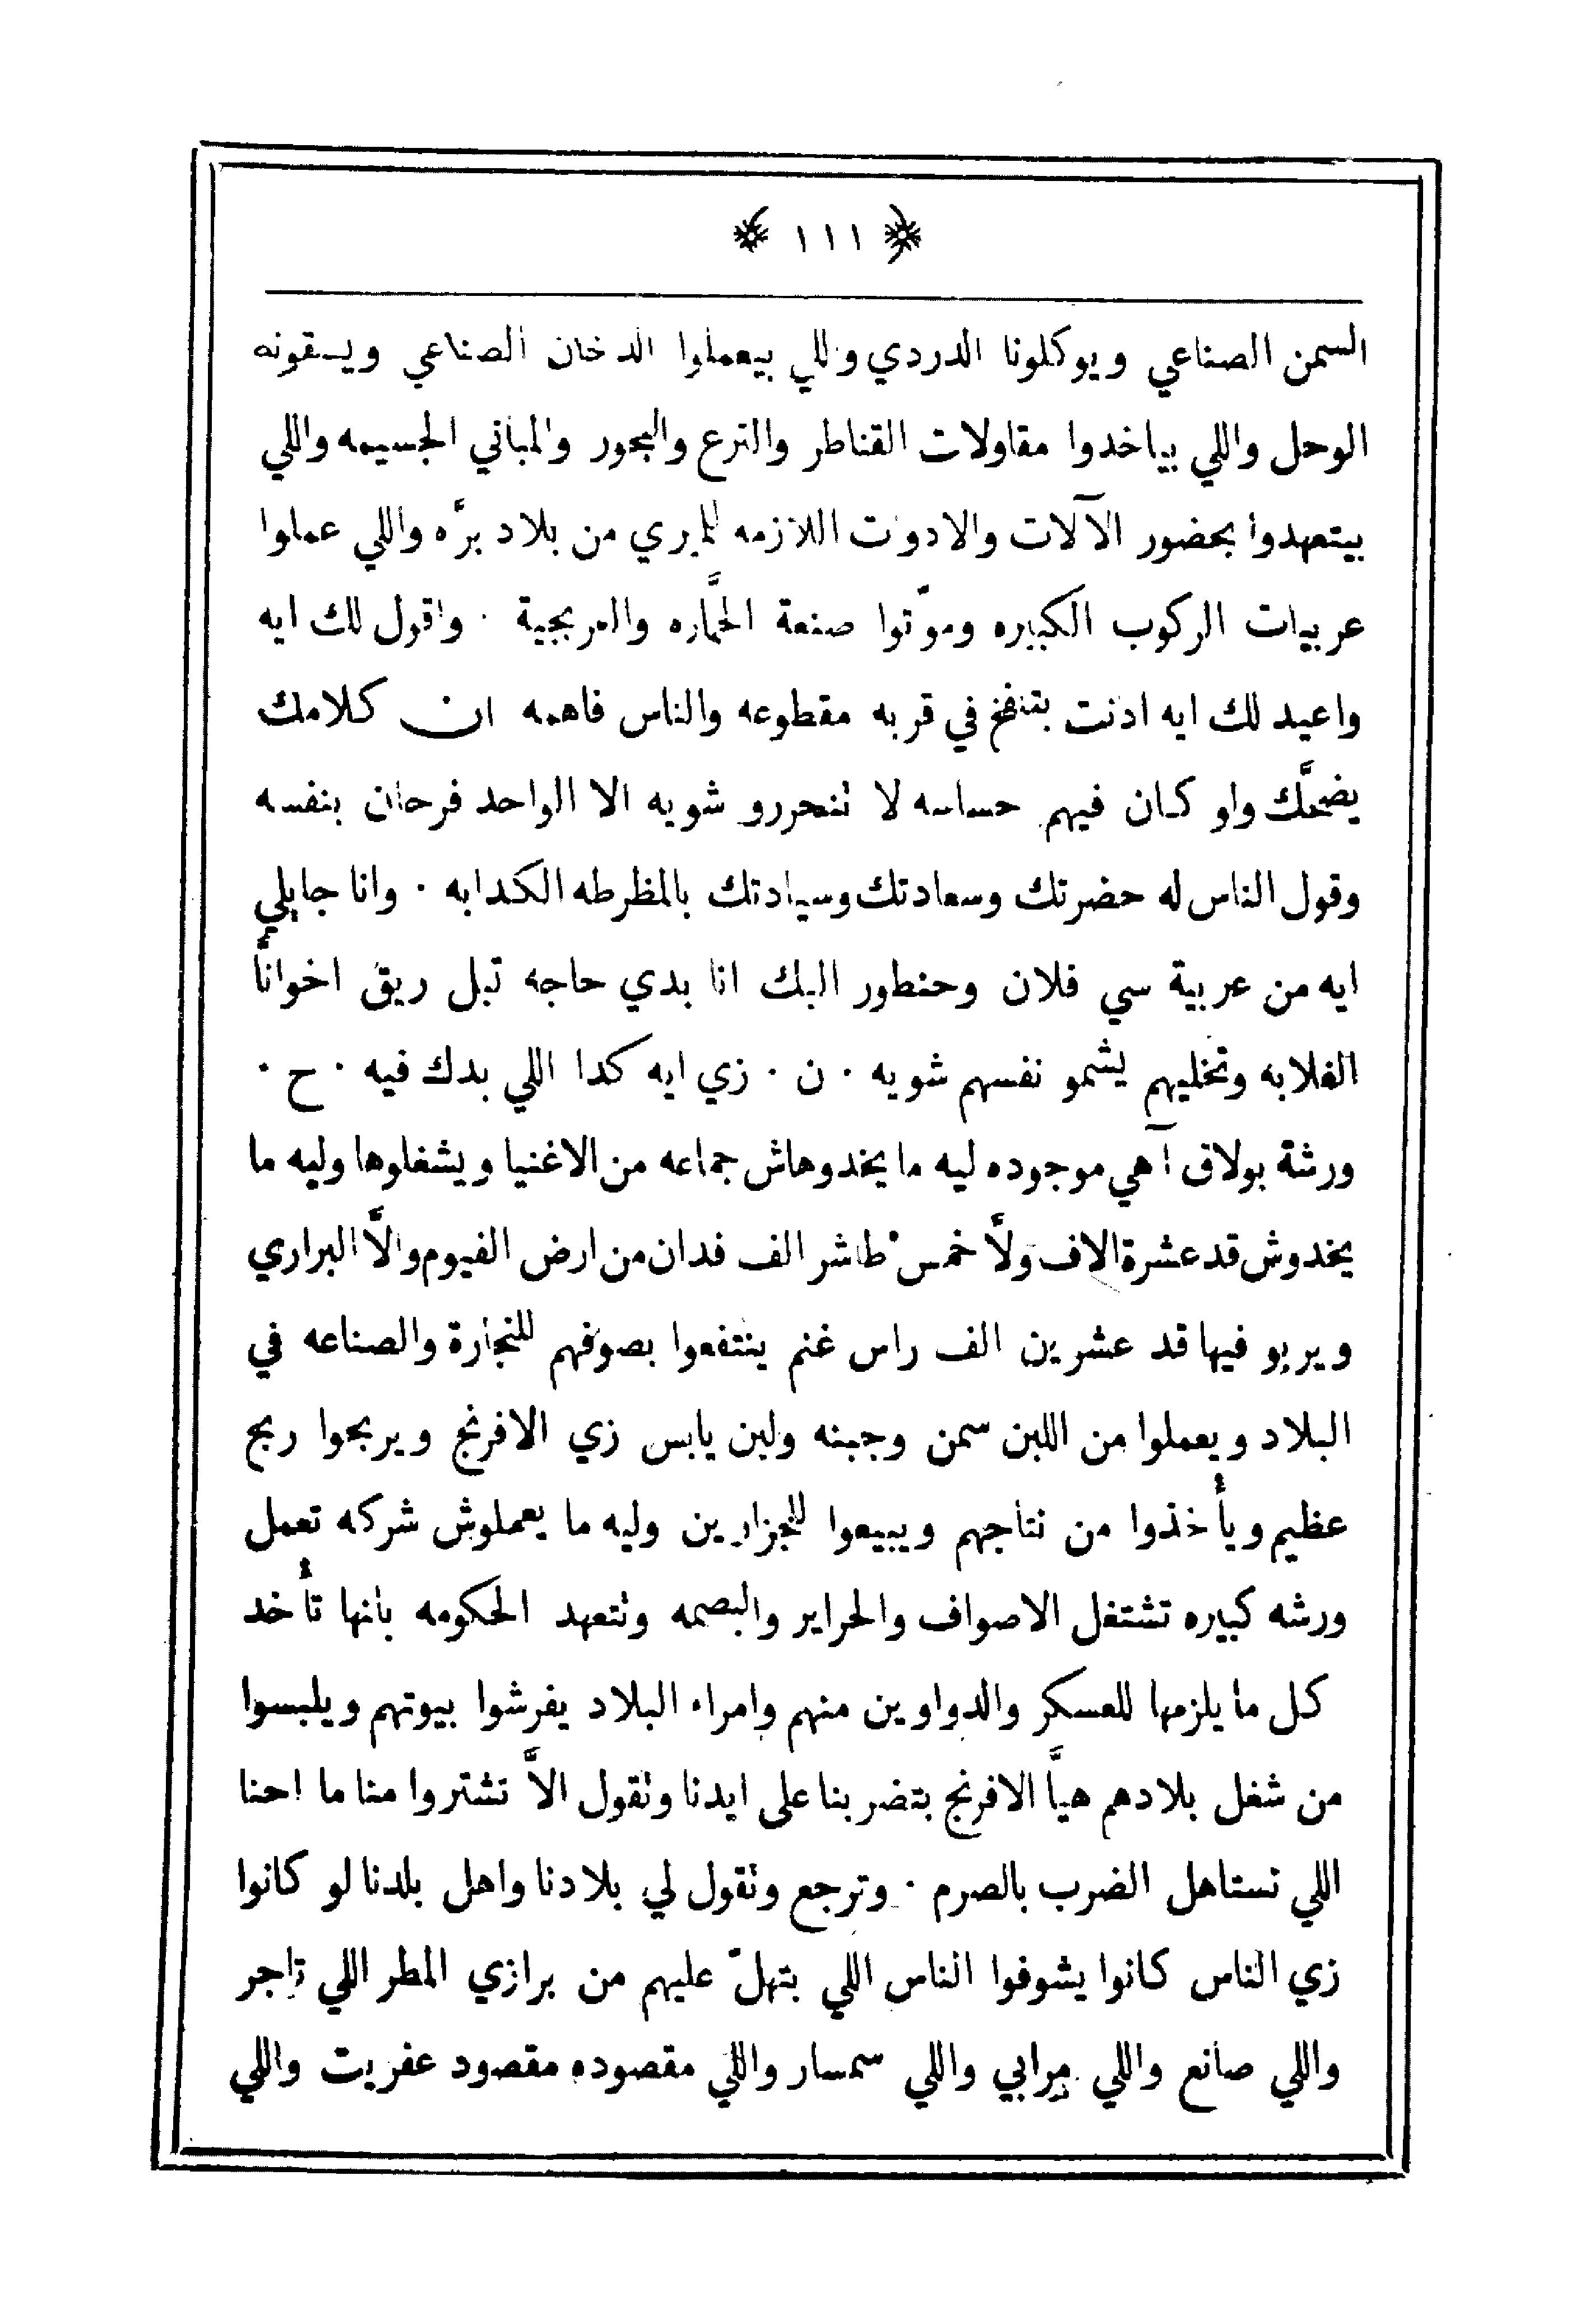 ﴿ ١١١ ﴾
السمن الصناعي ويوكلونا الدردي واللي بيعملوا الدخان الصناعي ويسقونه
الوحل واللي بياخدوا مقاولات القناطر والترع والبحور والمباني الجسيمه واللي
بيتعهدوا بحضور الآلات والادوات اللازمه للميري من بلاد برَّه واللي عملوا
عربيات الركوب الكبيره وموّتوا صنعة الحمَّاره والعربجية · واقول لك ايه
واعيد لك ايه ادنت بتنفخ في قربه مقطوعه والناس فاهمه ان كلامك
يضحَّك ولو كان فيهم حساسه لا تنحررو شويه الا الواحد فرحان بنفسه
وقول الناس له حضرتك وسعادتك وسيادتك بالمظرطه الكدابه · وانا جايلي
ايه من عربية سي فلان وحنطور البك انا بدي حاجه تبل ريق اخوانَّا
الغلابه وتخليهم يشمو نفسهم شويه · ن · زي ايه كدا اللي بدك فيه · ح ·
ورشة بولاق آ هي موجوده ليه ما يخدوهاش جماعه من الاغنيا ويشغلوها وليه ما
يخدوش قد عشرة الاف ولَّا خمس طاشر الف فدان من ارض الفيوم والَّا البراري
ويربو فيها قد عشرين الف راس غنم ينتفعوا بصوفهم للتجارة والصناعه في
البلاد ويعملوا من اللبن سمن وجبنه ولبن يابس زي الافرنج ويربحوا ربح
عظيم ويأخذوا من نتاجهم ويبيعوا للجزارين وليه ما يعملوش شركه تعمل
ورشه كبيره تشتغل الاصواف والحراير والبصمه وتتعهد الحكومه بانها تأخد
كل ما يلزمها للعسكر والدواوين منهم وامراء البلاد يفرشوا بيوتهم ويلبسوا
من شغل بلادهم هيَّا الافرنج بتضربنا على ايدنا وتقول الاَّ تشتروا منا ما احنا
اللي نستاهل الضرب بالصرم · وترجع وتقول لي بلادنا واهل بلدنا لو كانوا
زي الناس كانوا يشوفوا الناس اللي بتهلّ عليهم من برا زي المطر اللي تاجر
واللي صانع واللي مرابي واللي سمسار واللي مقصوده مقصود عفريت واللي